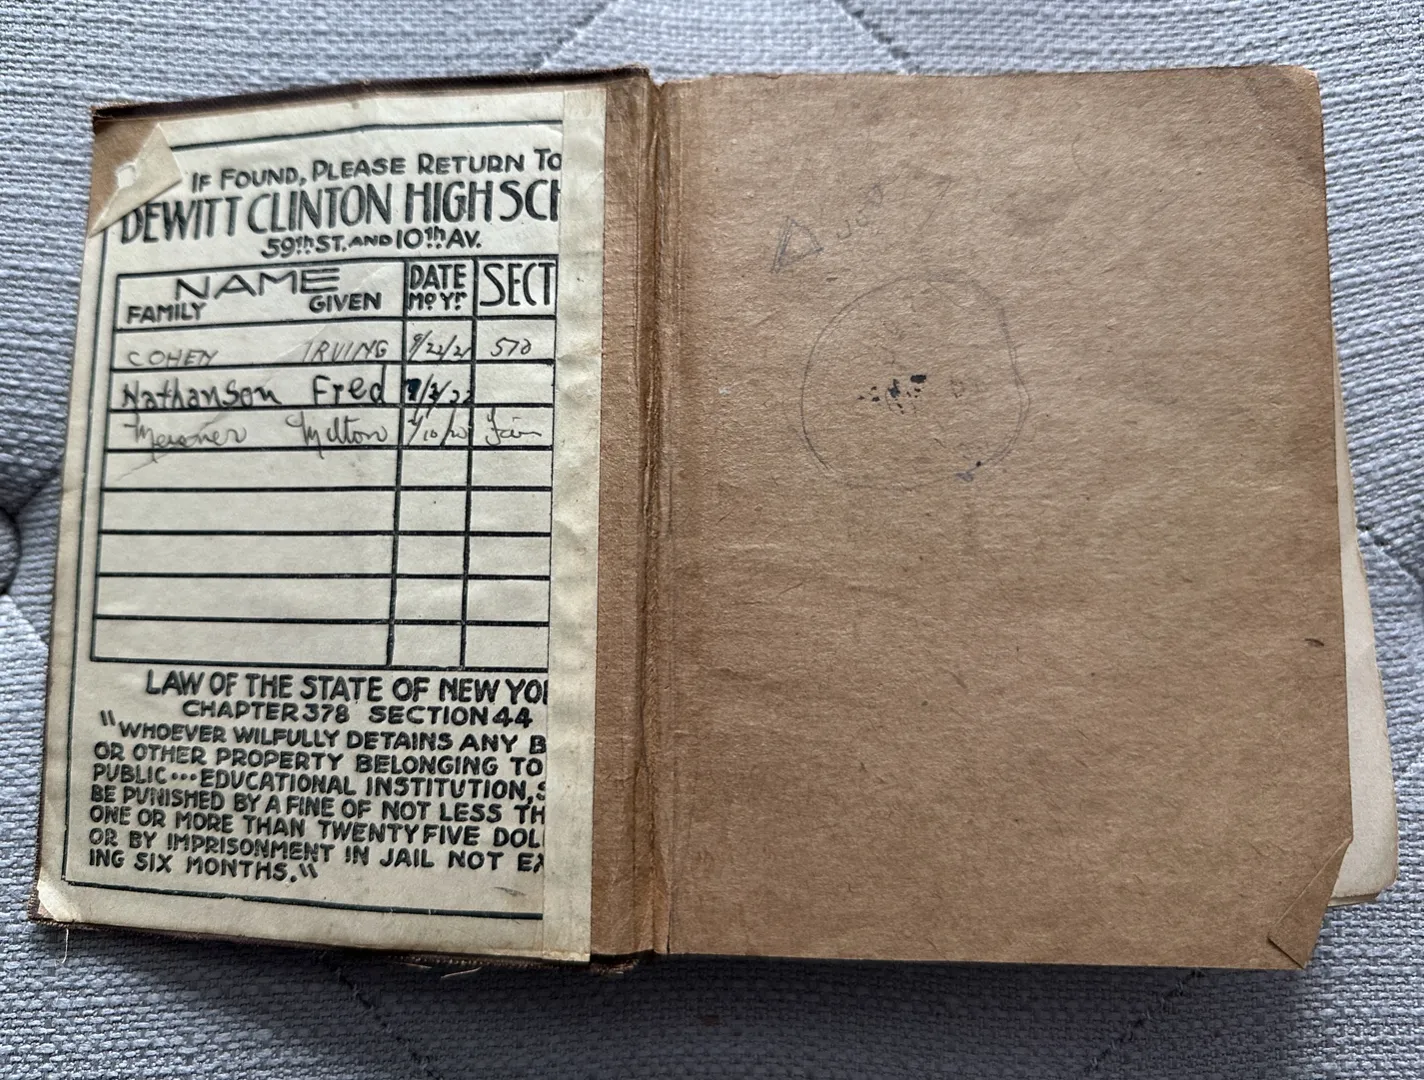 IF FOUND, PLEASE RETURN TO
DEWITT CLINTON HIGH SCH
59TH ST. AND 10TH AV.
NAME DATE SECT
FAMILY GIVEN MO YR
COHEN IRVING 9/22/21
Nathanson Fred
Milton
LAW OF THE STATE OF NEW YO
CHAPTER 378 SECTION 44
"WHOEVER WILFULLY DETAINS ANY B
OR OTHER PROPERTY BELONGING TO
PUBLIC...EDUCATIONAL INSTITUTION, S
BE PUNISHED BY A FINE OF NOT LESS TH
ONE OR MORE THAN TWENTY FIVE DOL
OR BY IMPRISONMENT IN JAIL NOT EX
ING SIX MONTHS."